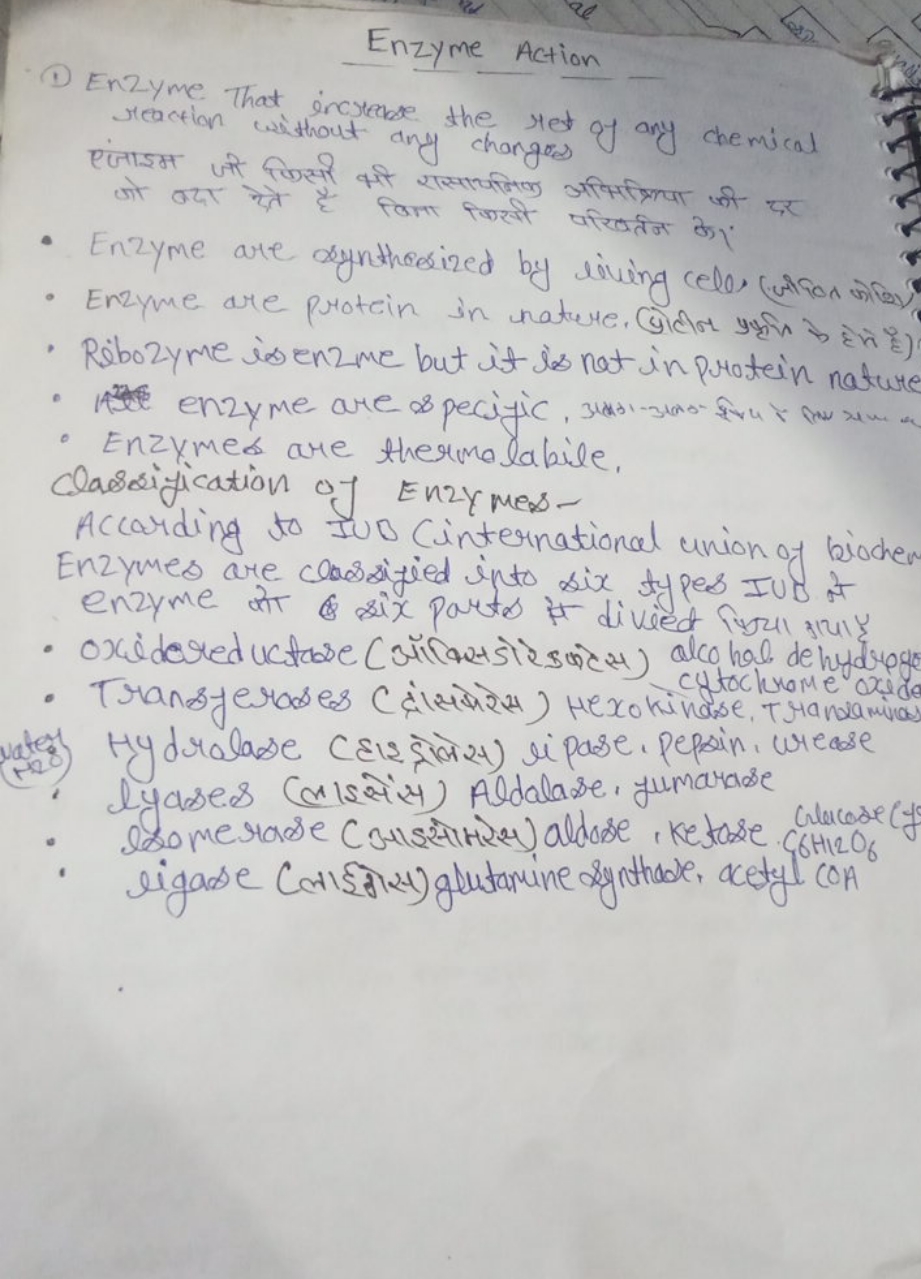 Enzyme Action
① Enzyme That increase the ret of any chemical
reaction without any changes
एंजाइम जो किसी भी रासायनिक अभिक्रिया की दर
को बढा देते है बिना किसी परिवर्तन के।
• Enzyme are synthesized by living cells (जीवित कोशि
• Enzyme are protein in nature. (प्रोटीन प्रकृति के होते है)
• Ribozyme is enzme but it is not in protein nature
• enzyme are specific, अलग-अलग
• Enzymes are thermolabile.
Classification of Enzymes-
According to IUB (international union of biochem
Enzymes are classified into six types IUB ने
enzyme को six parts में divied किया गया है
• oxidoreductase (ऑक्सिडोरेडक्टेस) alcohal dehydroge
cytochrome oxida
• Transferases (ट्रांसफेरेस) Hexokinase, Transaminas
water (H2O) Hydralase (हाइड्रोलेस) lipase, pepsin, urease
• lyases (लाइसेस) Aldalase, fumarase
• Isomerase (आइसोमरेस) aldose, ketose Glucose
C6H12O6
• ligase (लाईगेस) glutamine synthase, acetyl COA